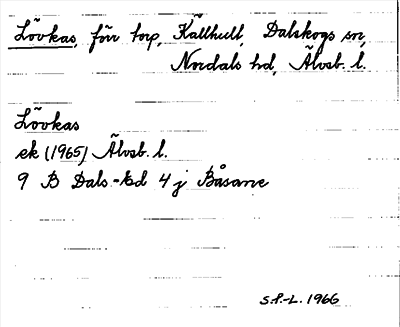 Lövkas, förr torp, Källhult, Dalskogs sn,
Nordals hd, Älvsb. l.
Lövkas
ek (1965) Älvsb. l.
9 B Dals-Ed 4 j Båsane
S.F.-L. 1966